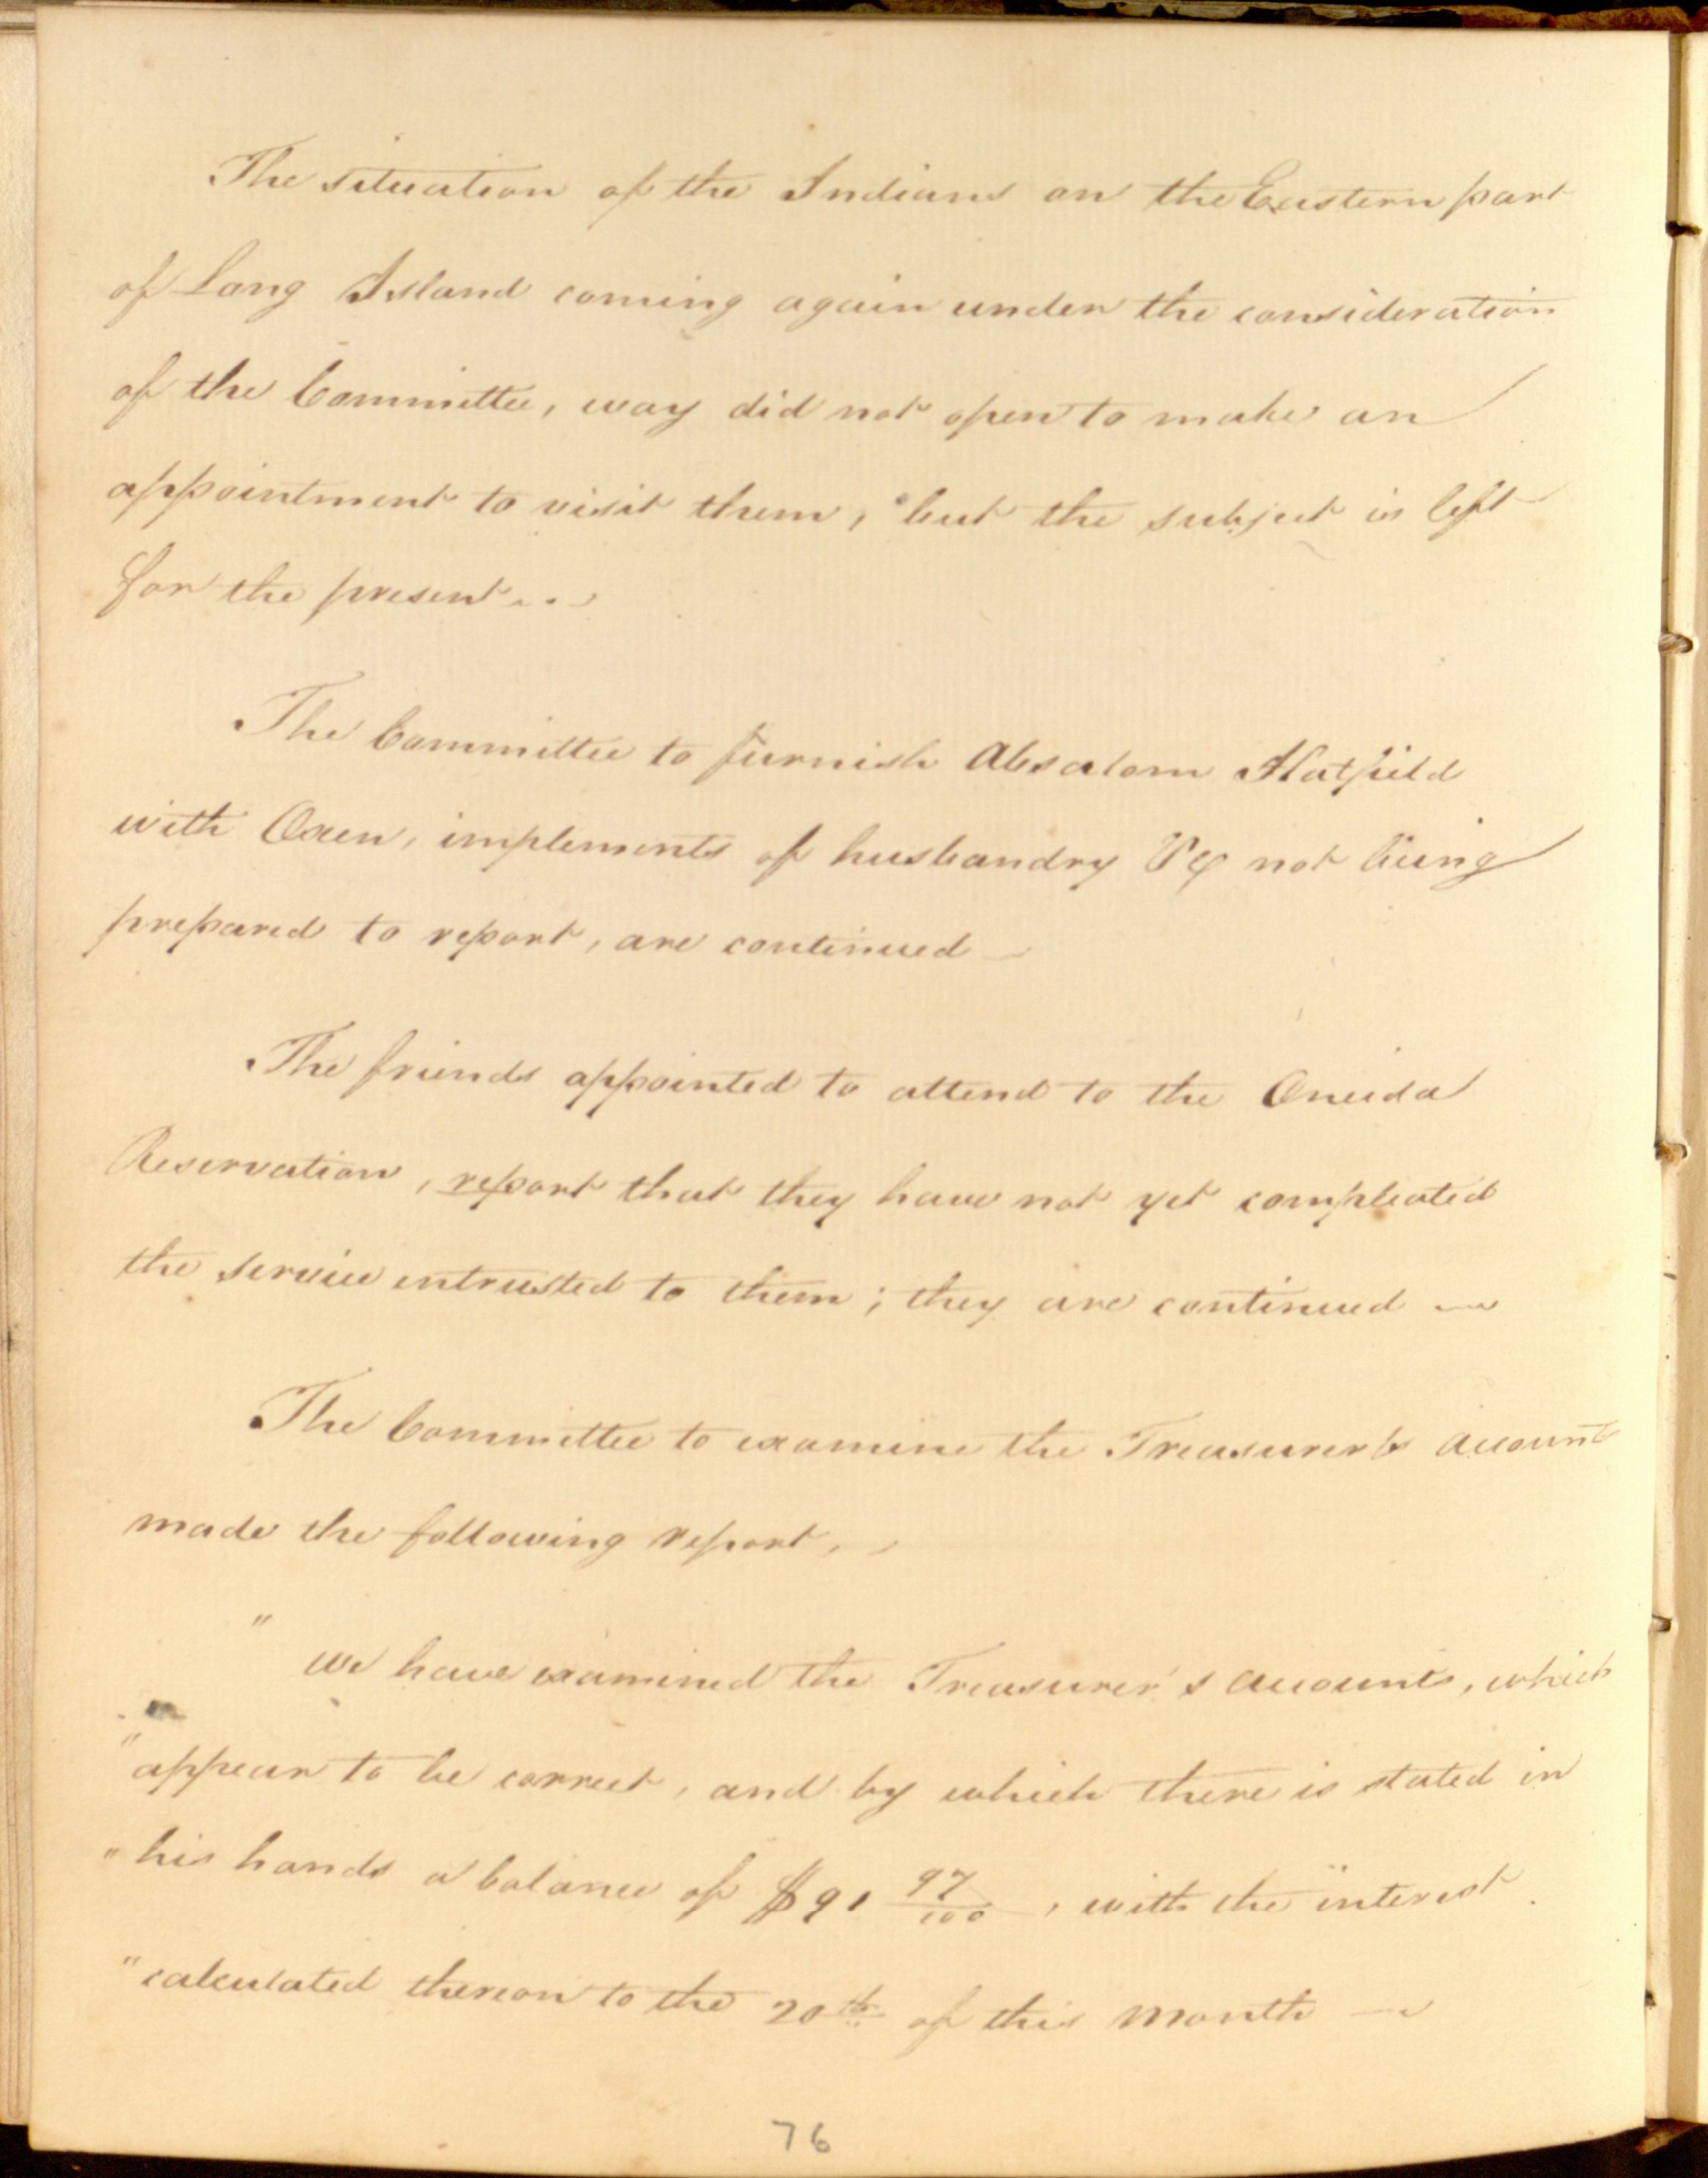 The situation of the Indians on the Eastern part
of Long Island coming again under the consideration
of the Committee, way did not open to make an
appointment to visit them, but the subject is left
for the present...
The Committee to furnish Absalom Hatfield
with Oxen, implements of husbandry &c not being
prepared to report, are continued —
The friends appointed to attend to the Oneida
Reservation, report that they have not yet compleated
the service entrusted to them; they are continued —
The Committee to examine the Treasurer's account
made the following report,
" we have examined the Treasurer's accounts, which
" appear to be correct, and by which there is stated in
" his hands a balance of $91 97/100, with the interest
" calculated thereon to the 20th of this month —
76